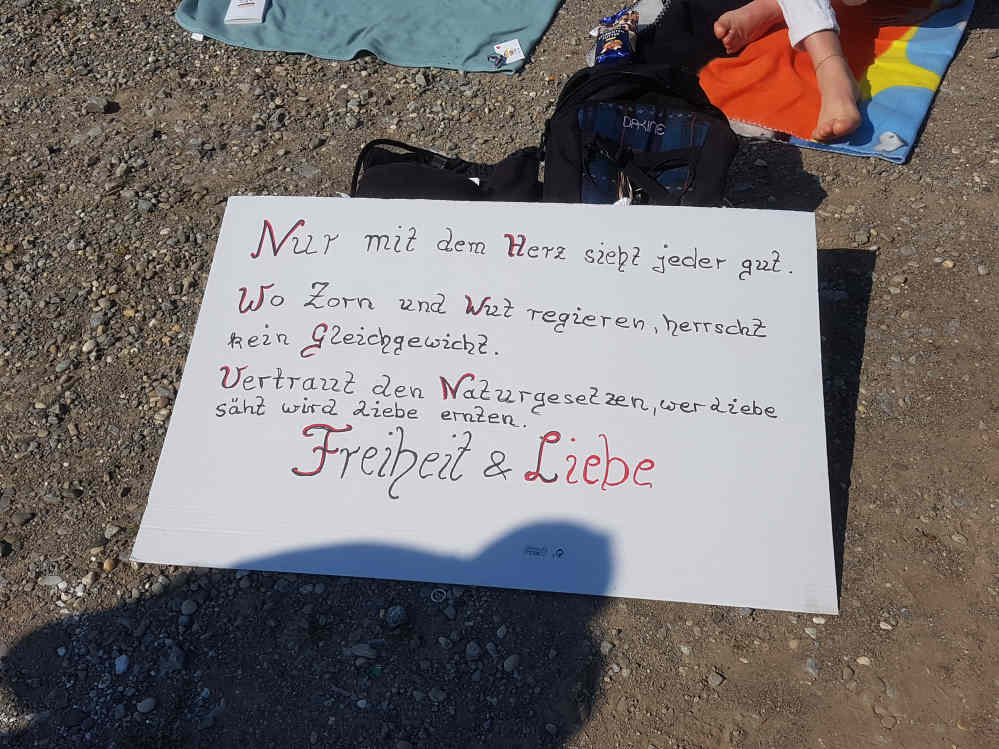 DAKINE
Nur mit dem Herz sieht jeder gut.
Wo Zorn und Wut regieren, herrscht
kein Gleichgewicht.
Vertraut den Naturgesetzen, wer Liebe
säht wird Liebe ernten.
Freiheit & Liebe